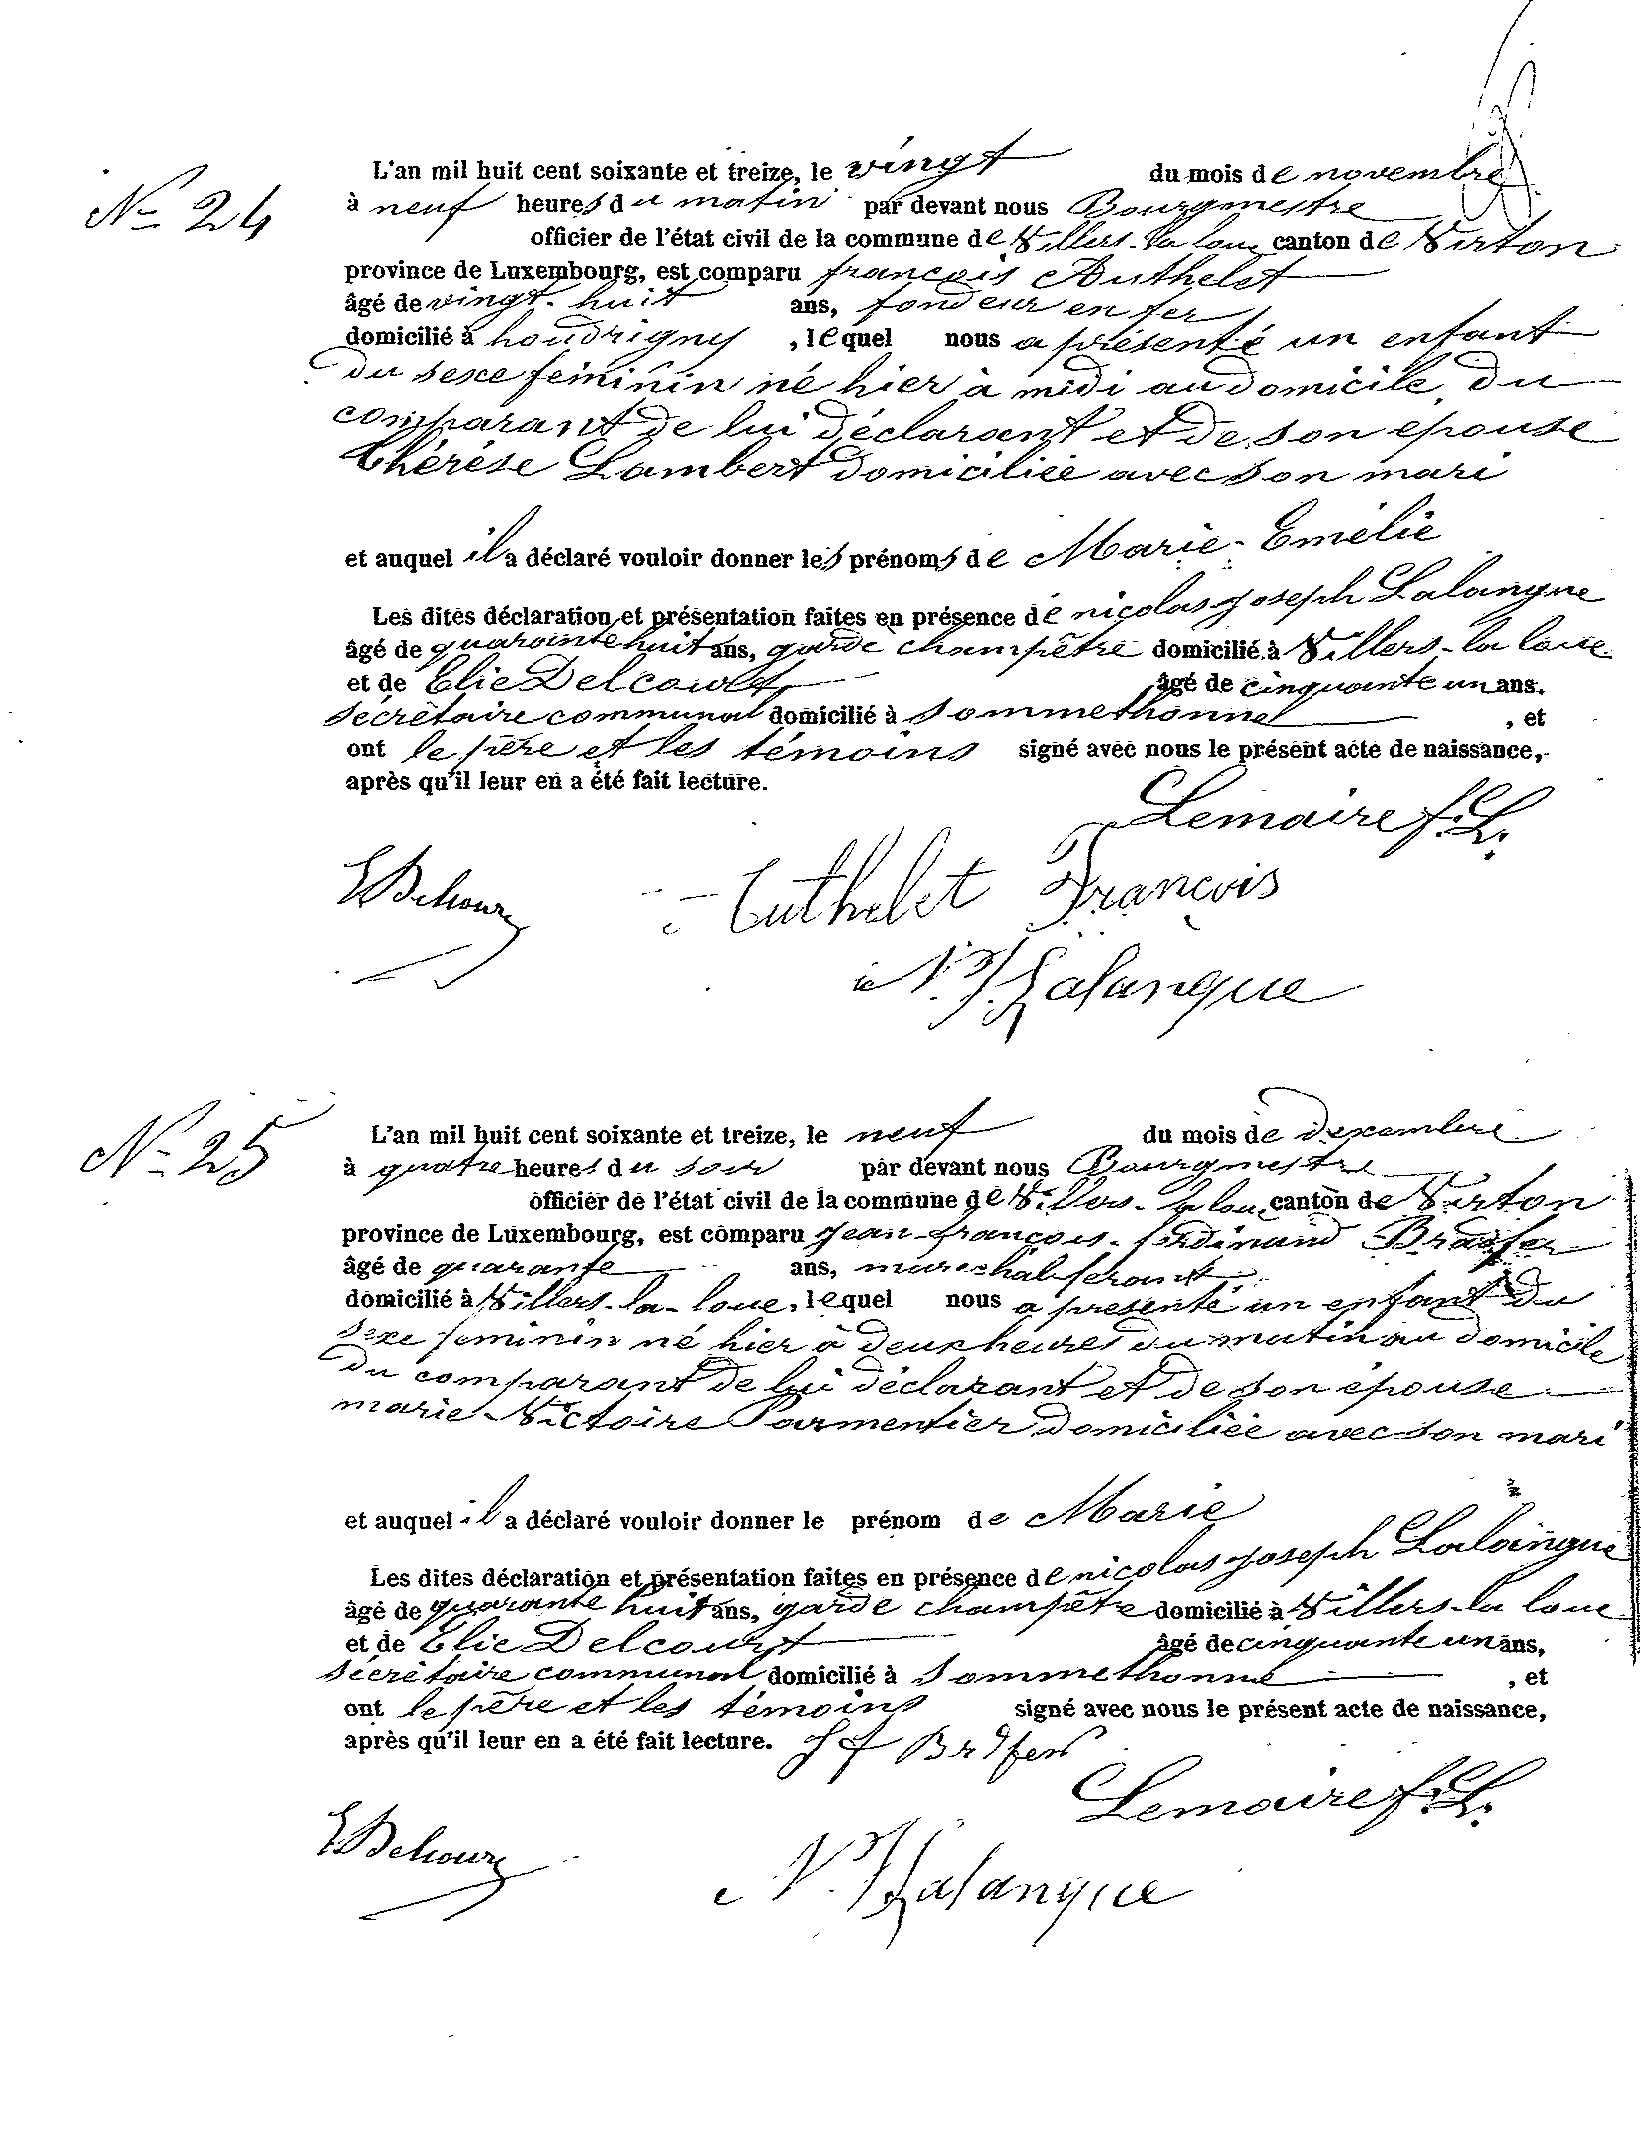 N° 24
L'an mil huit cent soixante et treize, le vingt du mois de novembre
à neuf heures du matin par devant nous Bourgmestre
officier de l'état civil de la commune de Villers-la loue canton de Virton
province de Luxembourg, est comparu françois Authelet
âgé de vingt-huit ans, fondeur en fer
domicilié à houdrigny, lequel nous a présenté un enfant
du sexe féminin né hier à midi au domicile du
comparant de lui déclarant et de son épouse
Thérèse Lambert domiciliée avec son mari
et auquel il a déclaré vouloir donner les prénoms de Marie-Emélie
Les dites déclaration et présentation faites en présence de nicolas joseph Lalangue
âgé de quarante huit ans, garde champêtre domicilié à Villers-la loue
et de Elie Delcourt âgé de cinquante un ans.
secrétaire communal domicilié à Sommethonne, et
ont le père et les témoins signé avec nous le présent acte de naissance,
après qu'il leur en a été fait lecture.
Lemaire f. L.
François
N. J. Lalangue
N° 25
L'an mil huit cent soixante et treize, le neuf du mois de decembre
à quatre heures du soir par devant nous Bourgmestre
officier de l'état civil de la commune de Villers-la loue canton de Virton
province de Luxembourg, est comparu Jean-françois-ferdinand
âgé de quarante ans, marechal ferant
domicilié à Villers-la-loue, lequel nous a presenté un enfant du
sexe feminin né hier à deux heures du matin au domicile
du comparant de lui déclarant et de son épouse
marie Victoire Parmentier domiciliée avec son mari
et auquel il a déclaré vouloir donner le prénom de Marie
Les dites déclaration et présentation faites en présence de nicolas joseph Lalangue
âgé de quarante huit ans, garde champêtre domicilié à Villers-la loue
et de Elie Delcourt âgé de cinquante un ans,
secrétaire communal domicilié à Sommethonne, et
ont le père et les témoins signé avec nous le présent acte de naissance,
après qu'il leur en a été fait lecture.
Lemaire f. L.
N. J. Lalangue